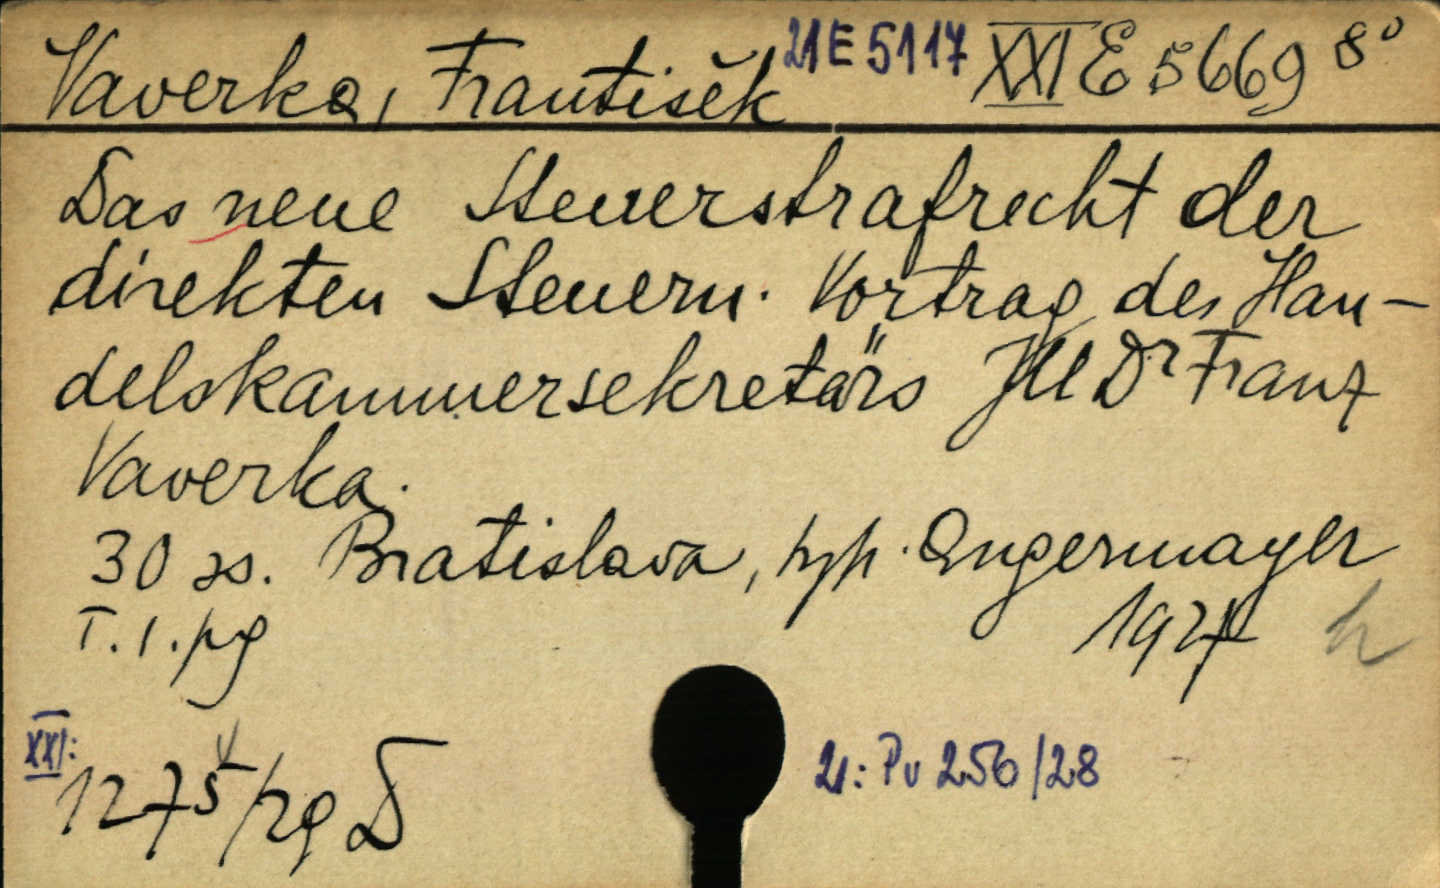 Vaverka, František 21E5117 XXI E 5669 8°
Das neue Steuerstrafrecht der
direkten Steuern. Vortrag des Han-
delskammersekretärs JUDr Franz
Vaverka.
30 ss. Bratislava, typ. Angermayer
T. 1. pg 1927
XXI:
1275/29 D
21: Pv 256/28